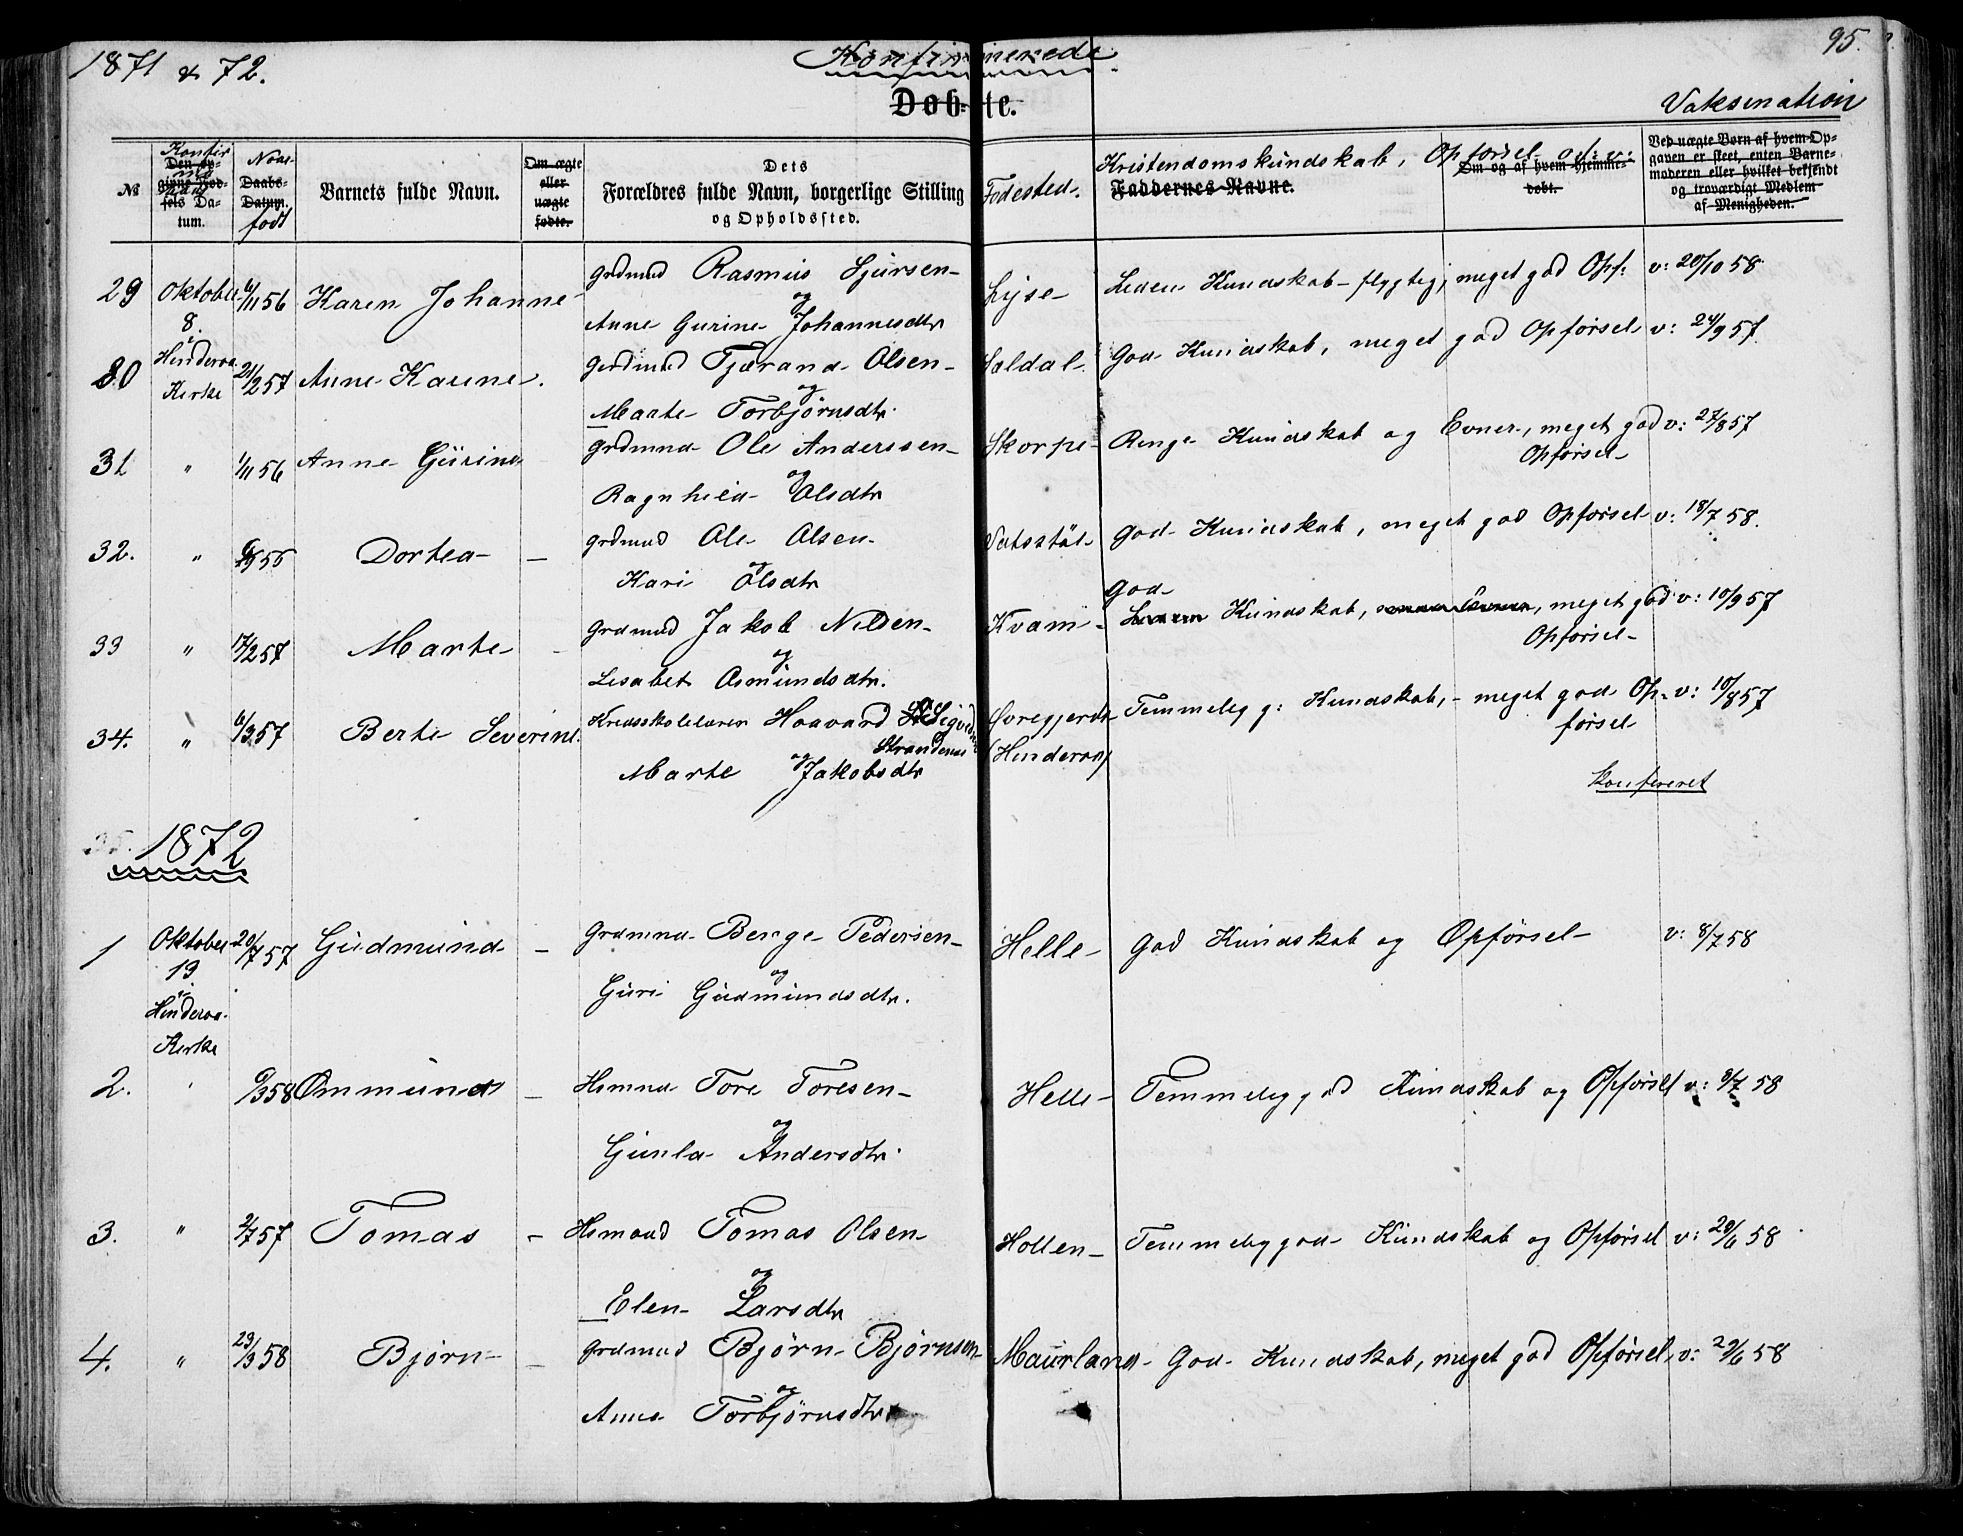 1871 & 72.
Konfirmerede
95.
Døbte.
Vaksination
№
Konfir
Den op-
givne Fød-
sels Da-
tum.
Naar
Daabs-
Datum.
født
Barnets fulde Navn.
Om ægte
eller
uægte
fødte.
Dets
Forældres fulde Navn, borgerlige Stilling
og Opholdssted.
Fødested.
Kristendomskundskab, Opførsel
Faddernes Navne.
Om og af hvem hjemme-
døbt.
Ved uægte Børn af hvem Op-
gaven er skeet, enten Barne-
moderen eller hvilket bekjendt
og troværdigt Medlem
af Menigheden.
29 Oktober 6/11 56 Karen Johanne grdmnd Rasmus Sjursen Lyse Liden Kundskab - flygtig, meget god Opf: v: 20/10 58
8. og
Anne Gurine Johannesdtr
i
30 Hinderaa Kirke 21/2 57 Anne Karine. grdmnd Tjærand Olsen Saldal God Kundskab, meget god Opførsel v: 24/9 57.
og
Marte Torbjørnsdtr.
31 " 1/11 56 Anne Gurine grdmnd Ole Anderssen Skorpe Ringe Kundskab og Evner, meget god v: 27/8 57
og Opførsel
Ragnhild Olsdtr
32. " Dortea - grdmnd Ole Olsen Vatsstøl God Kundskab, meget god Opførsel v: 18/7 58.
og
Kari Olsdtr
God
33 " 17/2 57 Marte - grdmnd Jakob Nilsen Kvam Kundskab, meget god v: 10/9 57
og Opførsel
Lisabet Osmundsdtr.
34. " 6/3 57 Berte Severine. Kredsskolelærer Haavard Sigvedsen Øvregjerde Temmelig g: Kundskab, - meget god Op- v: 10/8 57
Strandenes (Hinderaa) førsel
og
Marte Jakobsdtr
konfereret
35. 1872
1 Oktober 20/7 57 Gudmund - Grdmnd Benge Pedersen Helle God Kundskab og Opførsel v: 8/7 58
13 og
i Guri Gudmundsdtr.
Hinderaa
Kirke
2. " 9/3 58 Ommund - Hsmnd Tore Toresen Helle Temmelig god Kundskab og Opførsel v: 8/7 58
og
Gunla Andersdtr.
3. " 2/7 57 Tomas - Hsmand Tomas Olsen Hollen Temmelig god Kundskab og Opførsel v: 20/6 58
og
Elen Larsdtr
4. " 23/3 58 Bjørn - Grdmnd Bjørn Bjørnsen Maurland God Kundskab, meget god Opførsel, v: 29/6 58
og
Anna Torbjørnsdtr